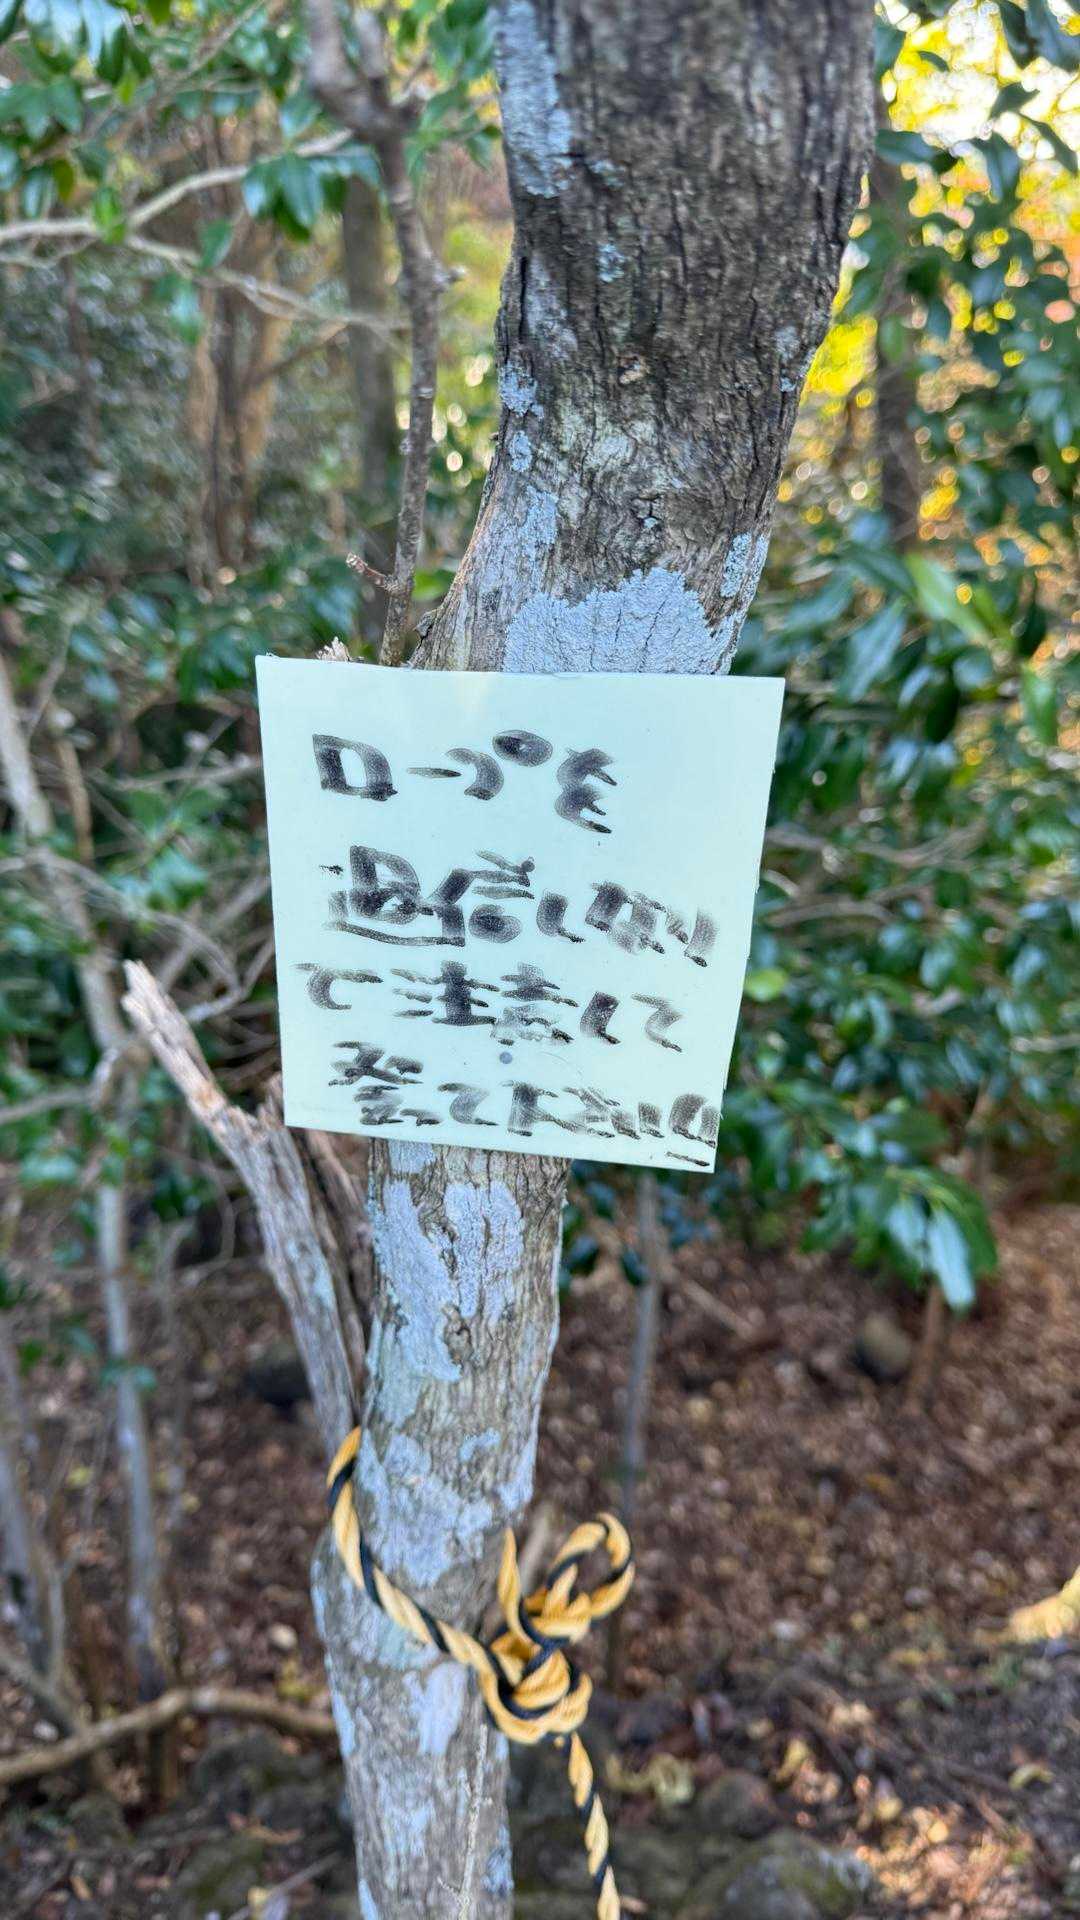 ロープを
過信しない
で注意して
登って下さい。